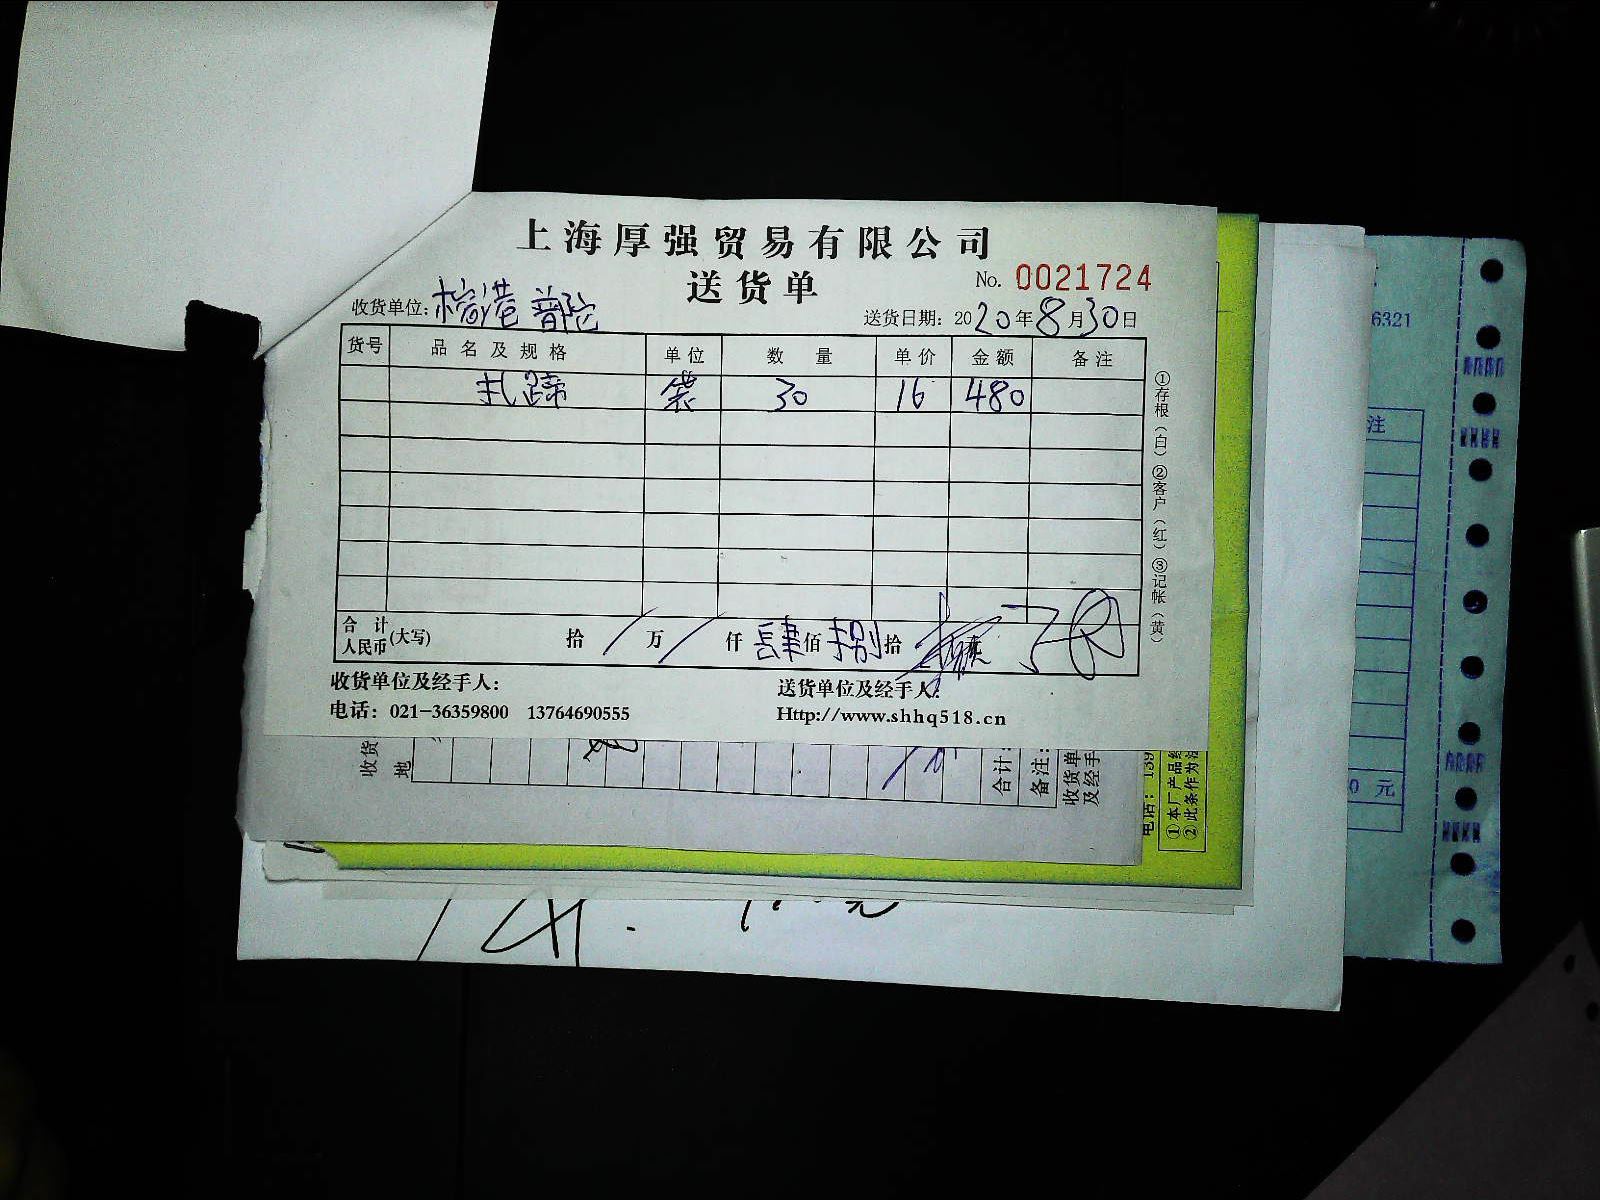 上海厚强贸易有限公司
送货单
No. 0021724
收货单位: 榕港 普陀
送货日期: 2020年8月30日
货号 品名及规格 单位 数量 单价 金额 备注
扎蹄 袋 30 16 480
①存根(白)②客户(红)③记帐(黄)
合计人民币(大写) 拾 / 万 / 仟 肆 佰 捌 拾
收货单位及经手人:
送货单位及经手人:
电话: 021-36359800 13764690555
Http://www.shhq518.cn
收货
地
合计:
备注:
收货单
及经手
电话: 139
①本厂产品经
②此条作为法
6321
注
0 元